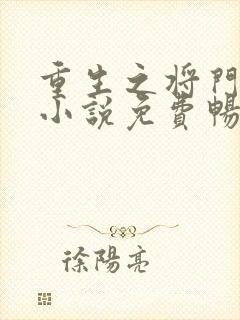 重生之将門
小説免費暢
徐陽亮